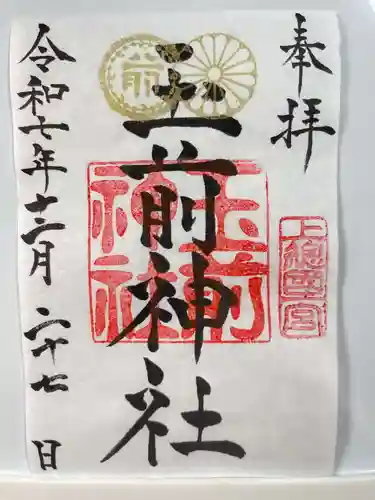 奉拝
玉前神社
令和七年十二月二十七日
玉前神社
上総一宮
前